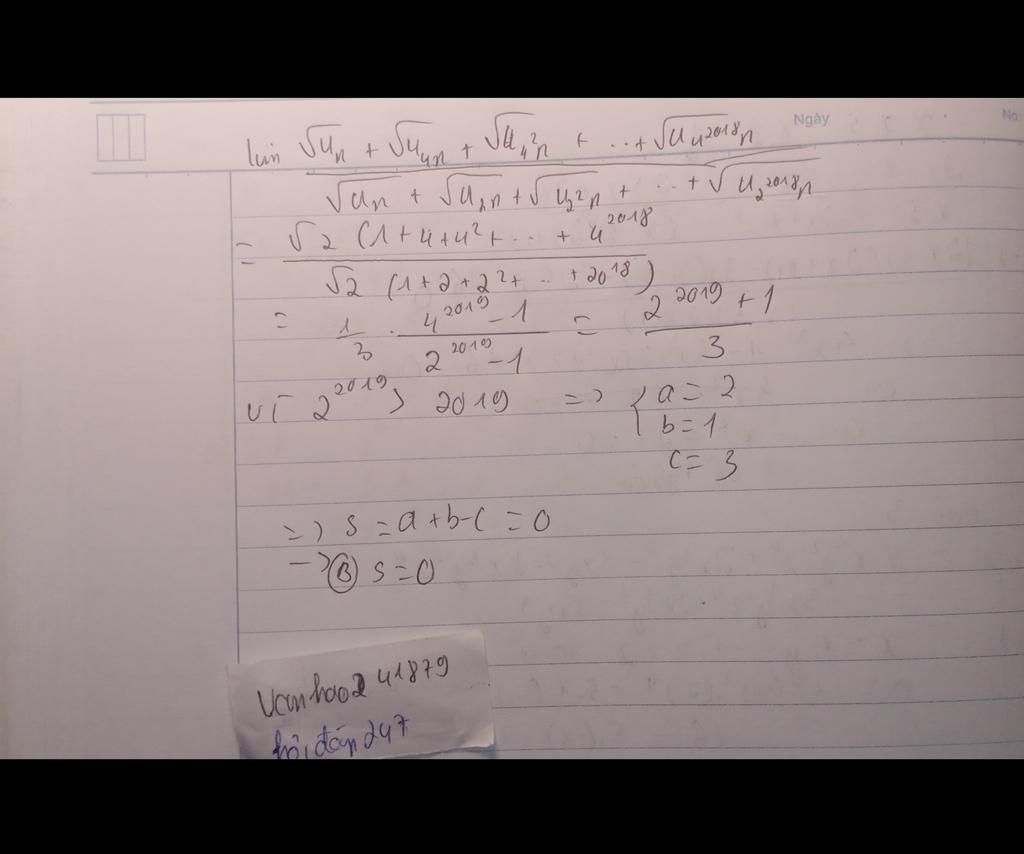 Ngày No
lim √Un + √U4n + √U4²n + ... + √U4²⁰¹⁸n
√Un + √U2n + √U2²n + ... + √U2²⁰¹⁸n
= √2 (1+4+4²+ ... + 4²⁰¹⁸
√2 (1+2+2²+ ... +2⁰¹⁸)
= 1/3 · (4²⁰¹⁹ - 1)/(2²⁰¹⁹ - 1) = (2²⁰¹⁹ + 1)/3
Vì 2²⁰¹⁹ > 2019 => { a = 2
b = 1
c = 3
=> S = a + b - c = 0
-> Ⓑ S = 0
Vanhao2 41879
hỏi đáp 247